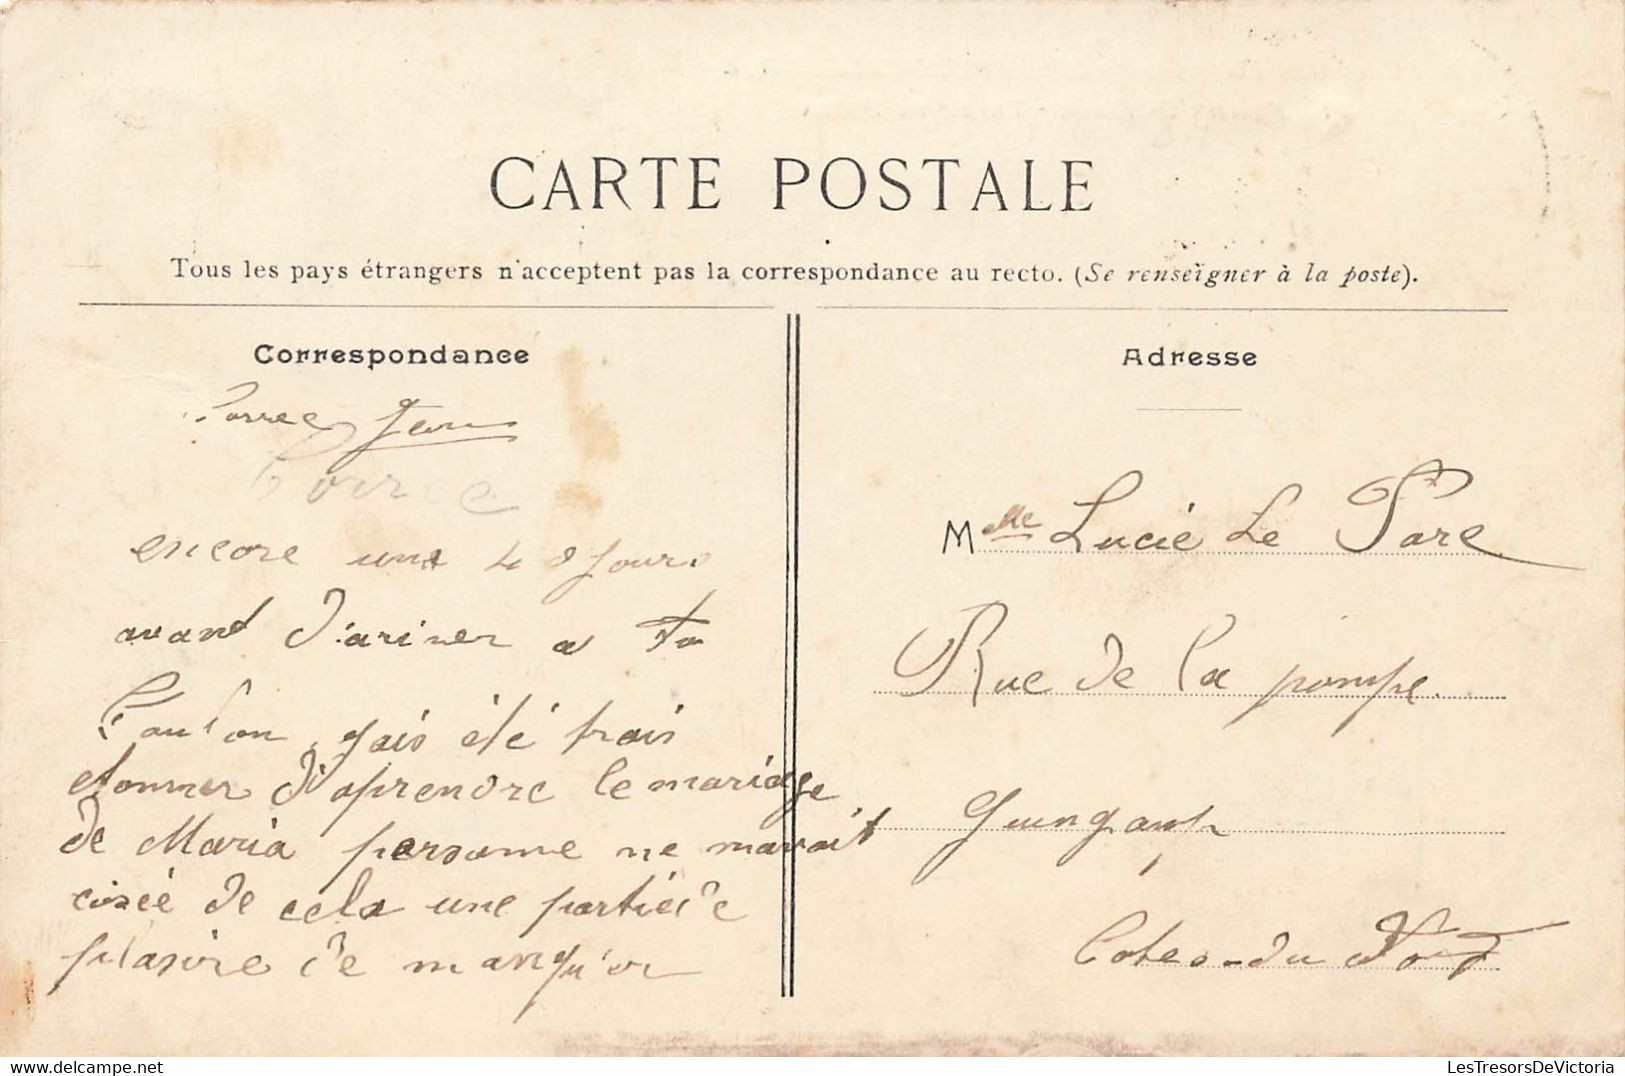 CARTE POSTALE
Tous les pays étrangers n'acceptent pas la correspondance au recto. (Se renseigner à la poste).
Correspondance
Adresse
Jean
encore une 4 8 jours
avant d'ariver a Ta
gais été trais
etonner d'aprendre le mariage
de Maria persoune ne mavait
cosée de cela une partie de
plasire de manqu'er
Melle Lucie Le Pare
Rue de la pompe
Guingamp
Cotes-du Nord
LesTresorsDeVictoria